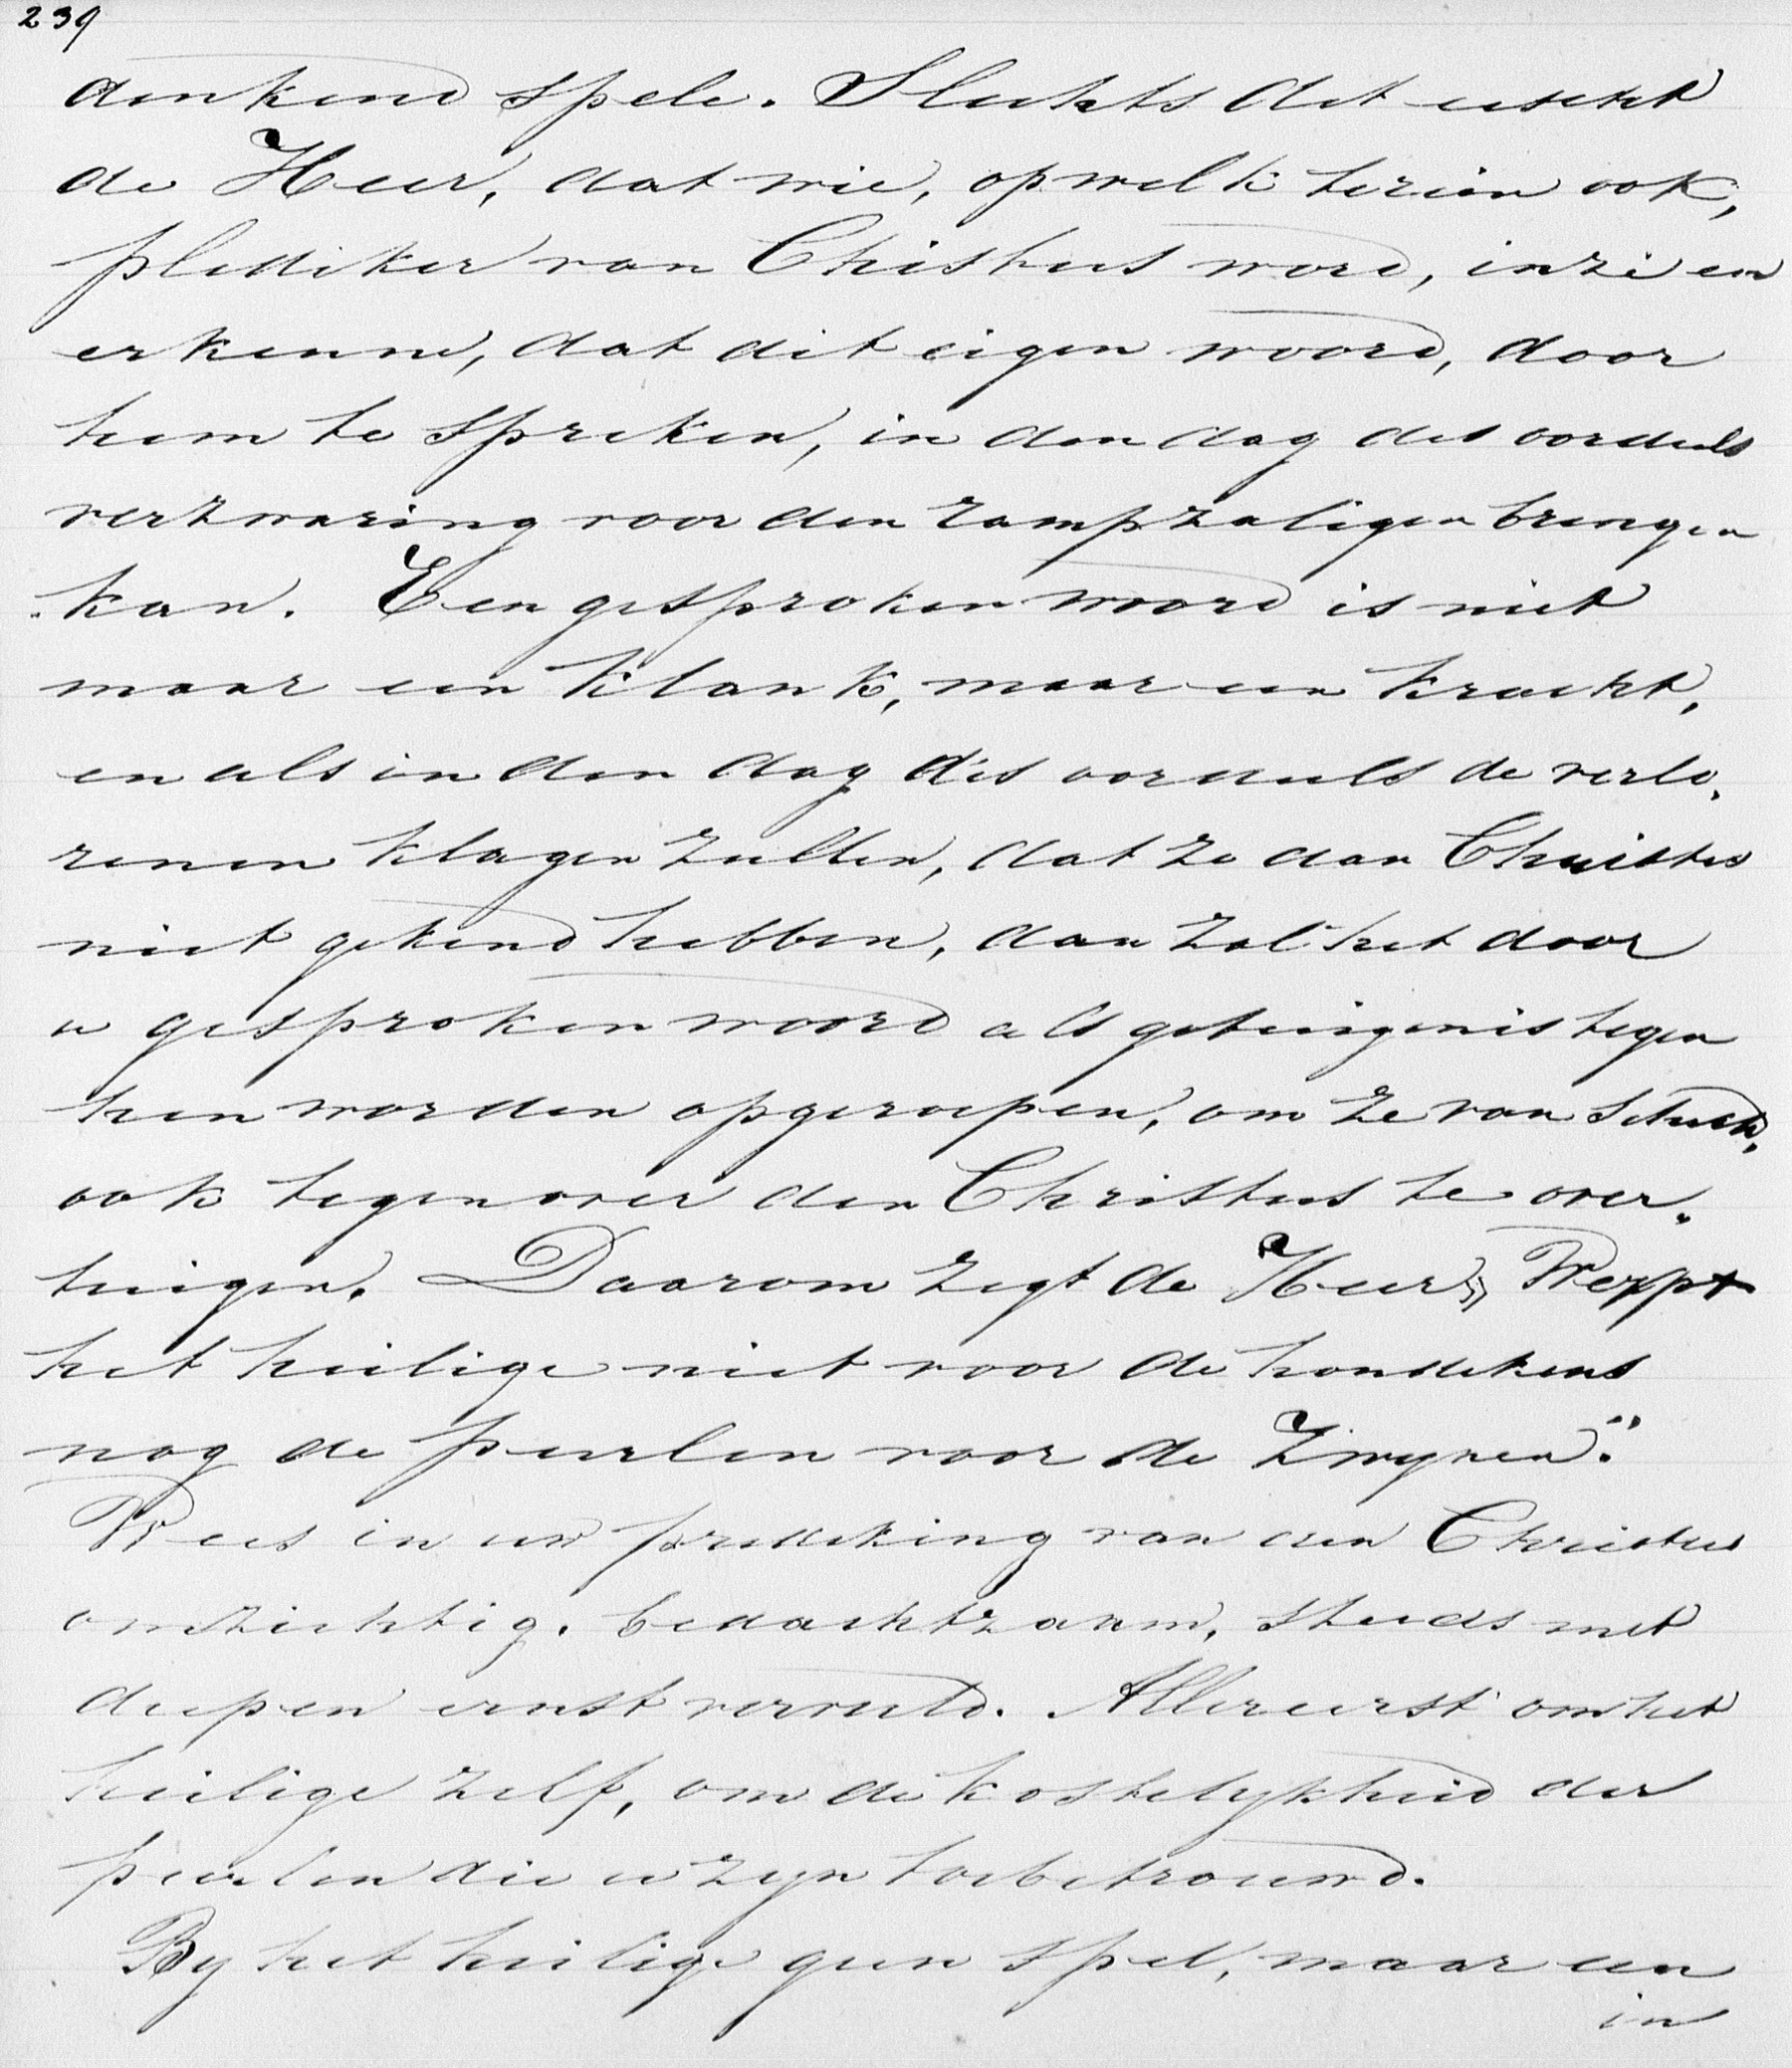 239
denkend spele. Slechts dit eischt
de Heer, dat wie, op welk terein ook,
plediker van Chistus word, inzie en
erkenne, dat dit eigen woord, door
hem te spreken, in den dag des oordeels
verzwaring voor den rampzaligen brengen
kan. Een gesproken woord is niet
maar een klank, maar een kracht,
en als in den dag des oordeels de verlo,
renen klagen zullen, dat ze dan Christus
niet gekend hebben, dan zal het door
u gesproken woord als getuigenis tegen
hen worden opgeroepen, om ze van schuld,
ook tegenover den Christus te over,
tuigen. Daarom zegt de Heer; „Werpt
het heilige niet voor de hondekens
nog de peerlen voor de Zwynen."
Wees in uw prediking van den Christus
omzichtig, bedachtzaam, steeds met
diepen ernst vervuld. Allereerst om het
heilige zelf, om de kostelykheid der
peerlen die u zyn toebetrouwd.
By het heilige geen spel, maar een
in